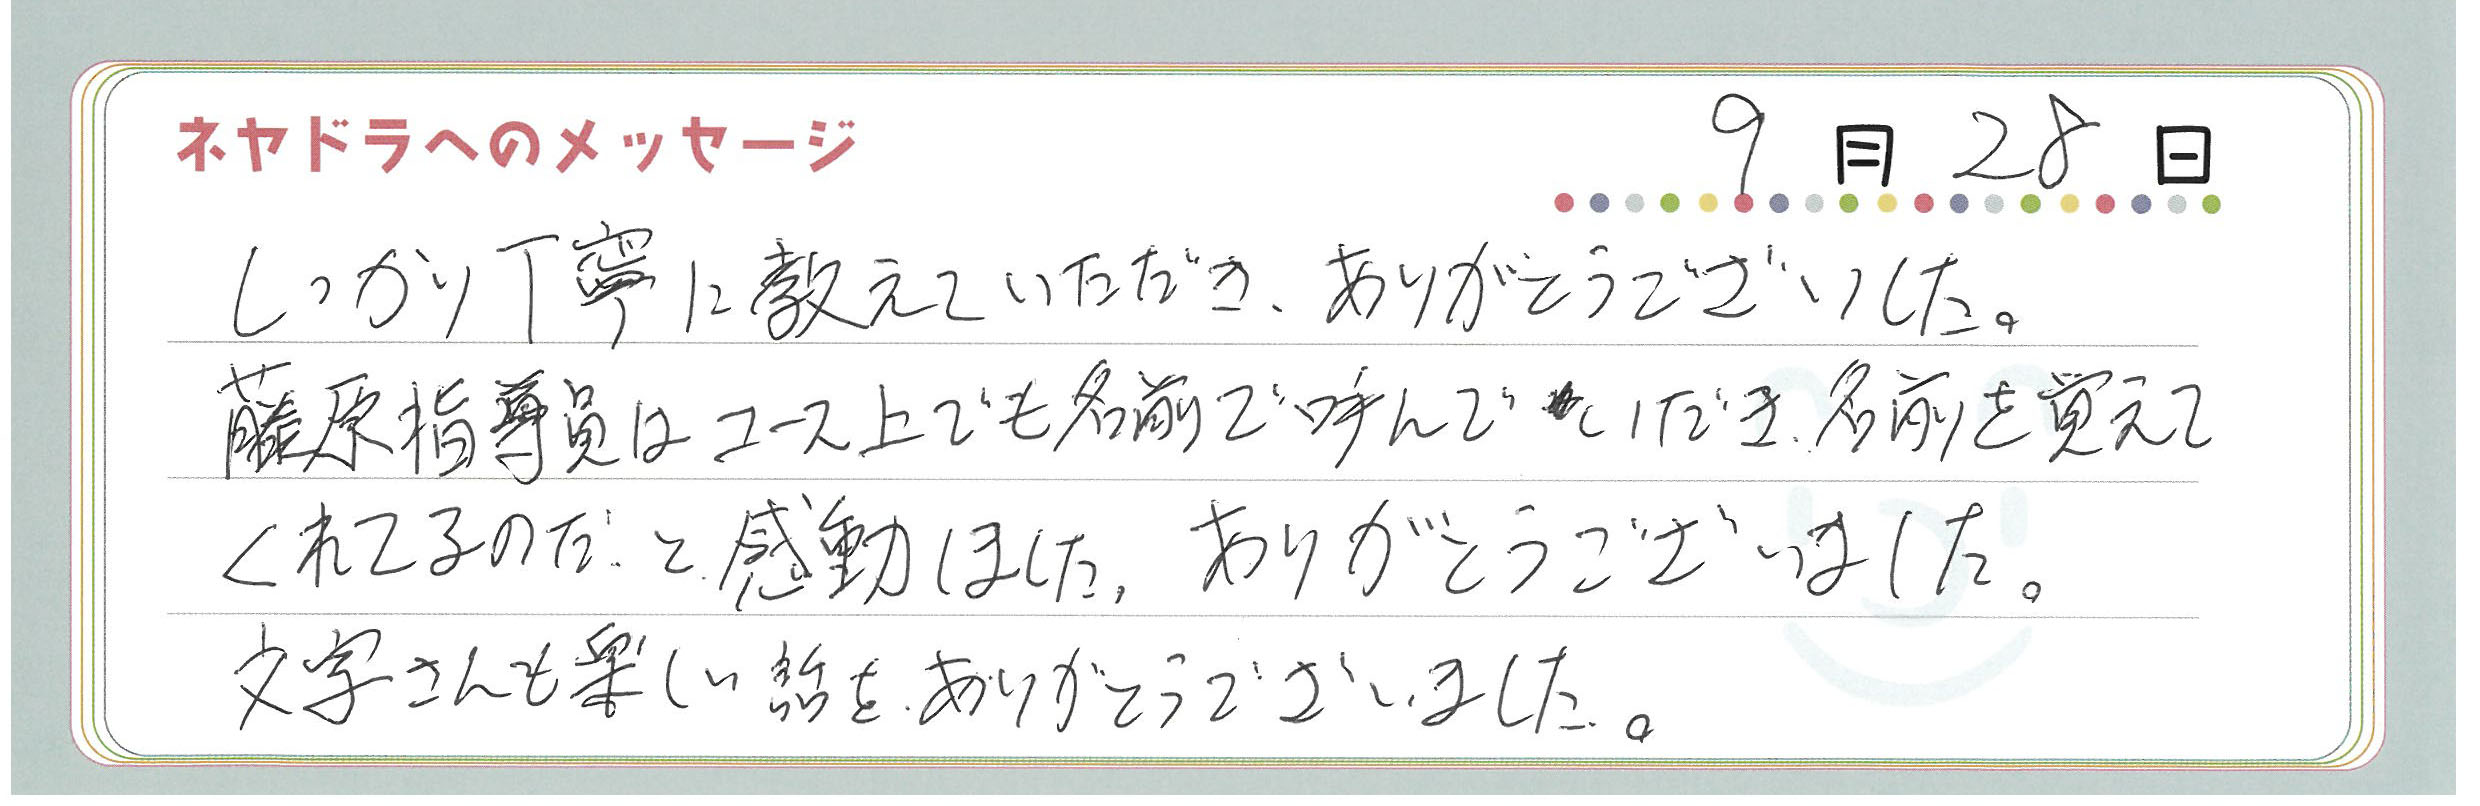 ネヤドラへのメッセージ
9月28日
しっかり丁寧に教えていただき、ありがとうございした。
藤原指導員はコース上でも名前で呼んでいただき、名前を覚えて
くれてるのだ、と、感動しました。ありがとうございました。
文字さんも楽しい話を、ありがとうございました。